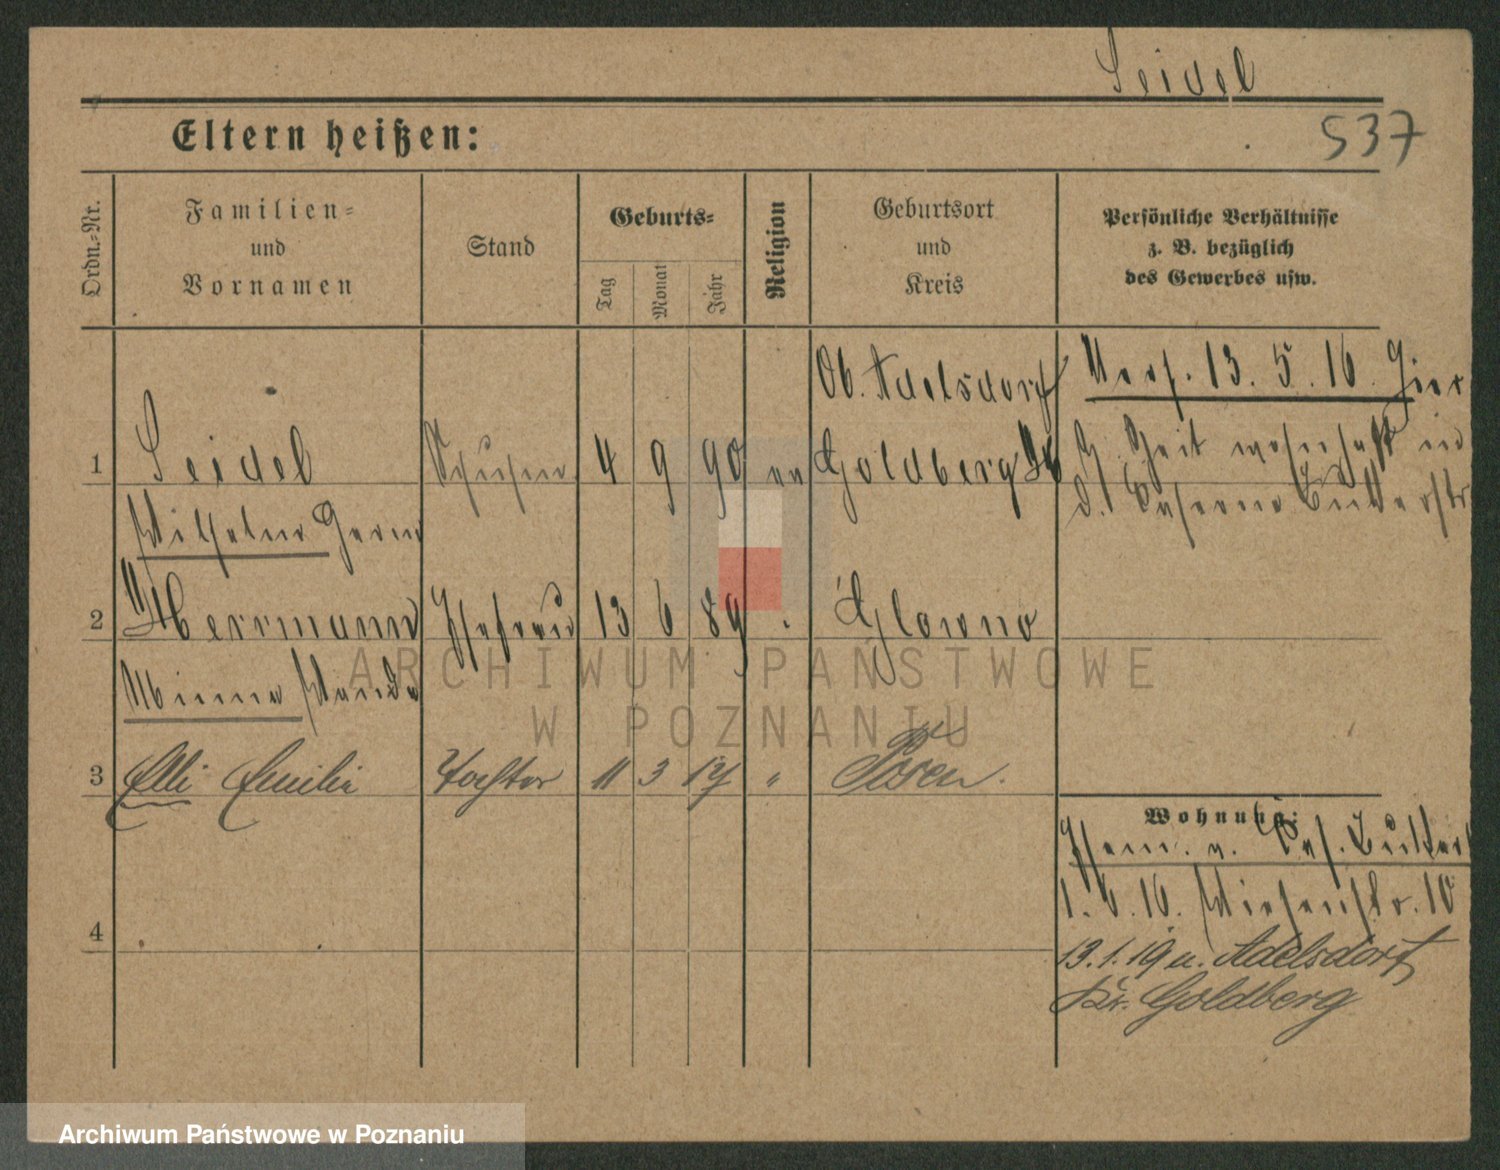 Seidel
Eltern heißen:
537
Ordn.-Nr.
Familien-
und
Vornamen
Stand
Geburts-
Tag
Monat
Jahr
Religion
Geburtsort
und
Kreis
Persönliche Verhältnisse
z. B. bezüglich
des Gewerbes usw.
Ob. Adelsdorf
13. 5. 16.
1 Seidel 4 9 90 ev Goldberg
Zeit wohnhaft in
Wilhelm Herm
d. Caserne
2 Herrmann Ehefrau 13 6 89 Glowno
Minna Wanda
ARCHIWUM PAŃSTWOWE
W POZNANIU
3 Elli Emilie Tochter 11 3 17 " Posen.
Wohnung:
1. 6. 16. Wiesenstr. 10
4
13.1.19 n. Adelsdorf
Kr. Goldberg
Archiwum Państwowe w Poznaniu